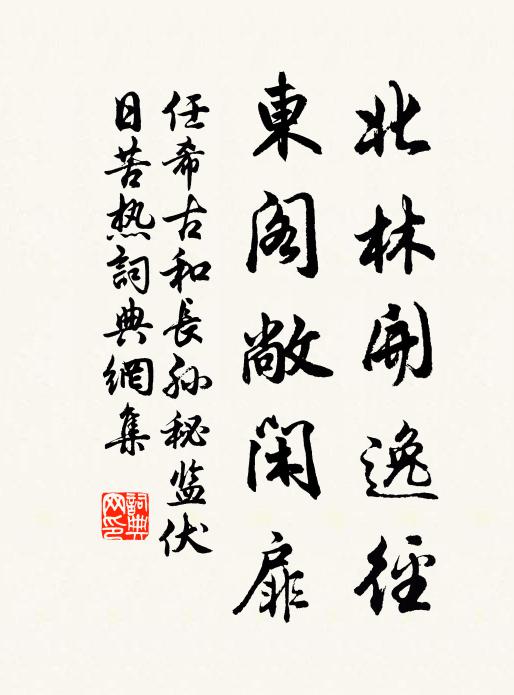 北林開逸徑
東阁敞閑扉
任希古和長孙秘监伏
日苦热詞典網集
詞典
网印